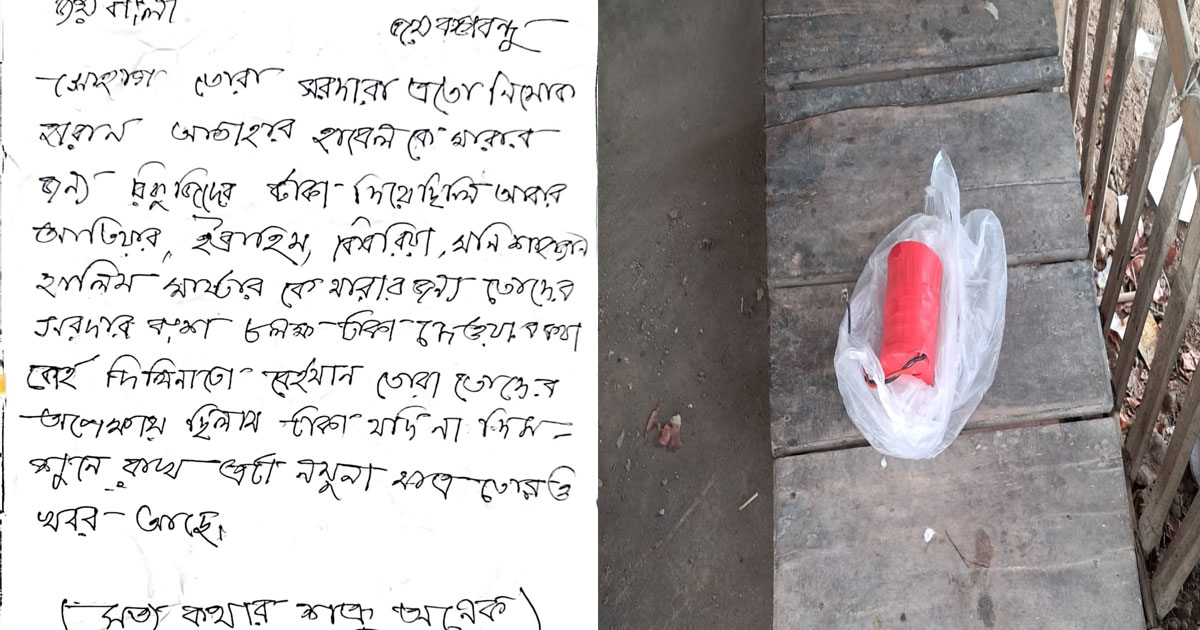 জয় বাংলা
জয় বঙ্গবন্ধু
সোহাগ তোরা সরদারা এতো নিমোক
হারাম আত্তাহার হাবেল কে মারার
জন্য টাকা দিয়েছিলি আবার
আতিয়ার, ইব্রাহিম, মনি
হালিম মাস্টার কে মারার জন্য তোদের
সরদার বংশা ৮ লক্ষ টাকা দেওয়ার কথা
দিলিনাতো বেইমান তোরা তোদের
অপেক্ষায় ছিলাম টাকা যদি না দিস
শুনে রাখ এটা নমুনা মাত্র তোরও
খবর আছে,
(সত্য কথার শত্রু অনেক)